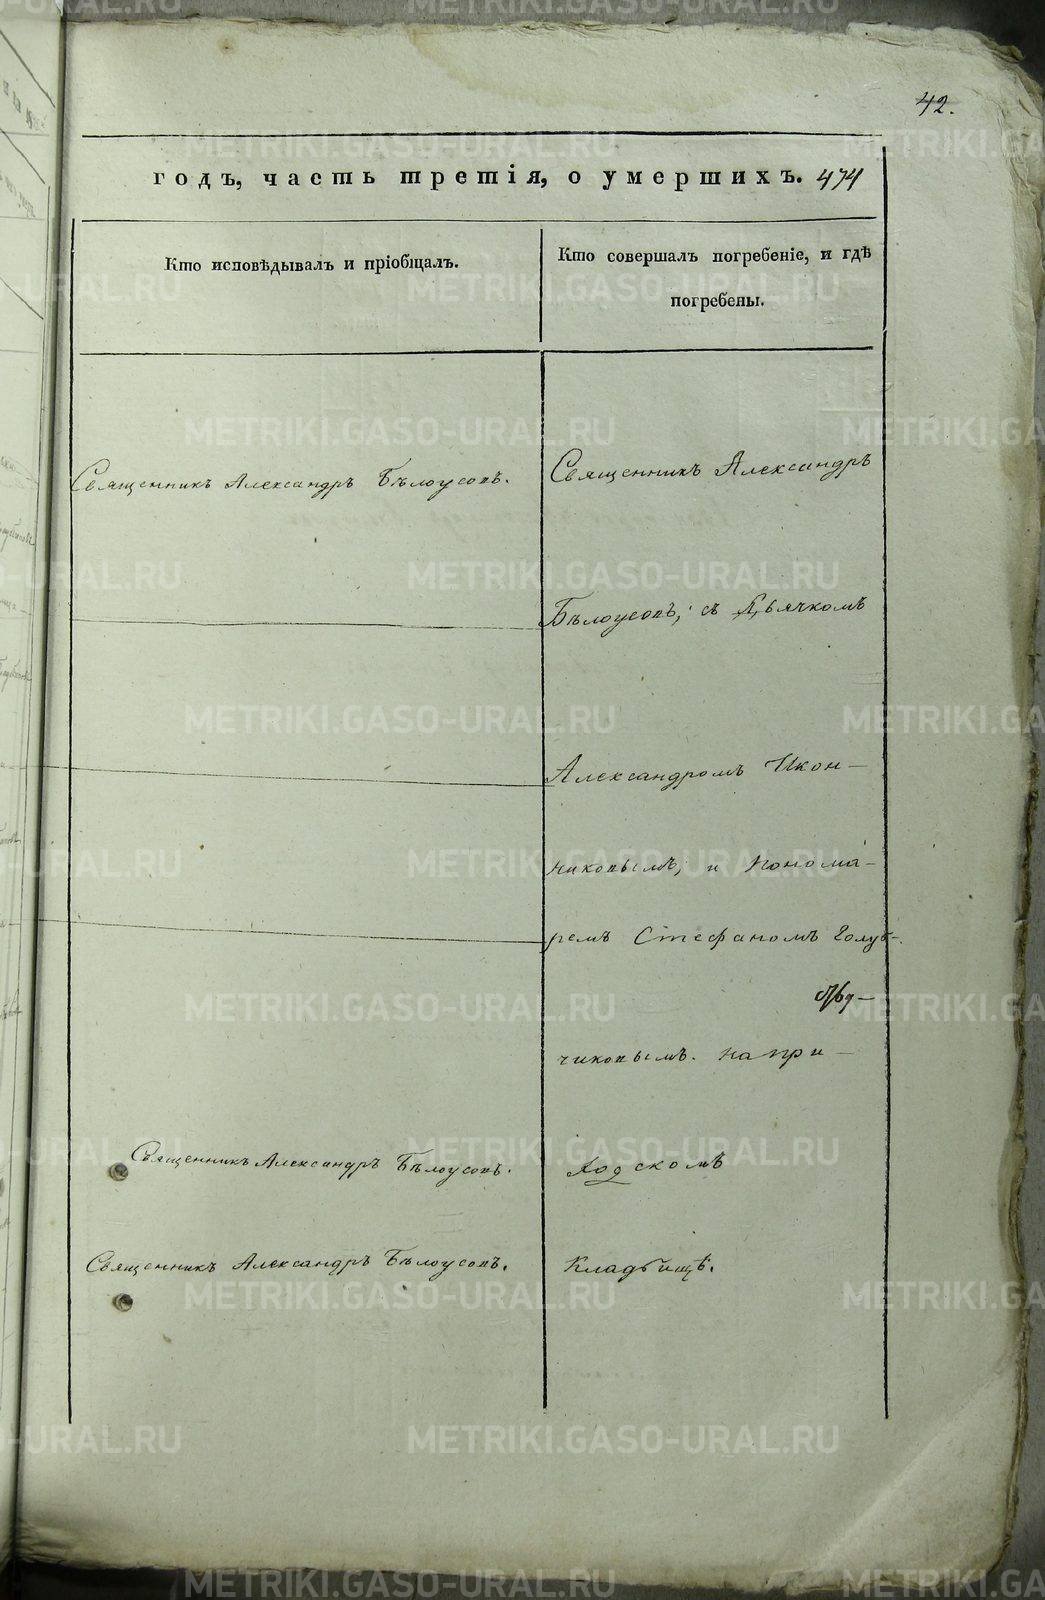 42.
годъ, часть третія, о умершихъ. 474
Кто исповѣдывалъ и пріобщалъ.
Кто совершалъ погребеніе, и гдѣ
погребены.
Священникъ Александръ Бѣлоусовъ.
Священникъ Александръ
Бѣлоусовъ, съ Дьячкомъ
Александромъ Икон-
никовымъ, и Понома-
ремъ Стефаномъ Голуб-
чиковымъ. на при-
Священникъ Александръ Бѣлоусовъ.
ходскомъ
Священникъ Александръ Бѣлоусовъ.
Кладбищѣ.
METRIKI.GASO-URAL.RU